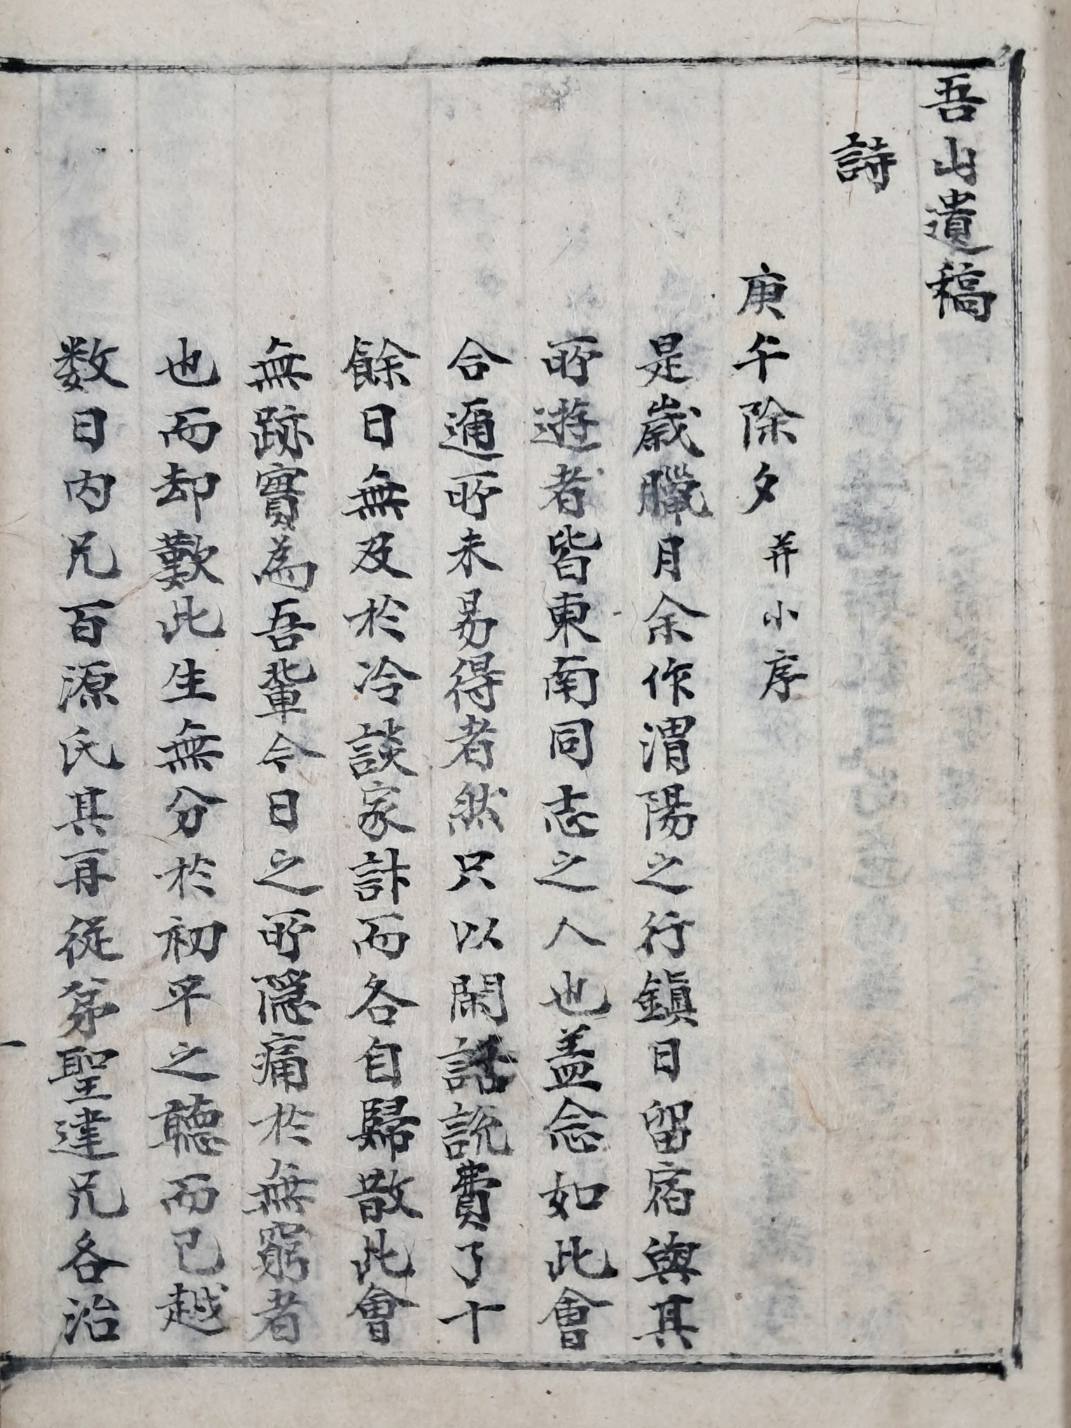 吾山遺稿
詩
庚午除夕 并小序
是歲臘月余作渭陽之行鎮日留宿與其
所遊者皆東南同志之人也盖念如此會
合邇所未易得者然只以閑話說費了十
餘日無及於冷談家計而各自歸散此會
無跡實為吾輩今日之所隱痛於無窮者
也而却歎此生無分於初平之聽而已越
数日内兄百源氏其再從弟聖達兄各治